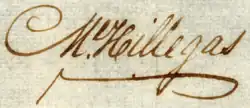 M. Hillegas